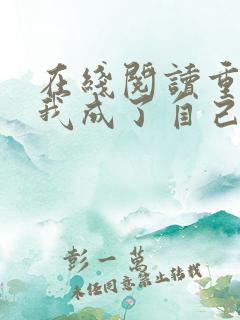 在綫閱讀重
我成了自己
彭一萬
未經同意禁止轉載